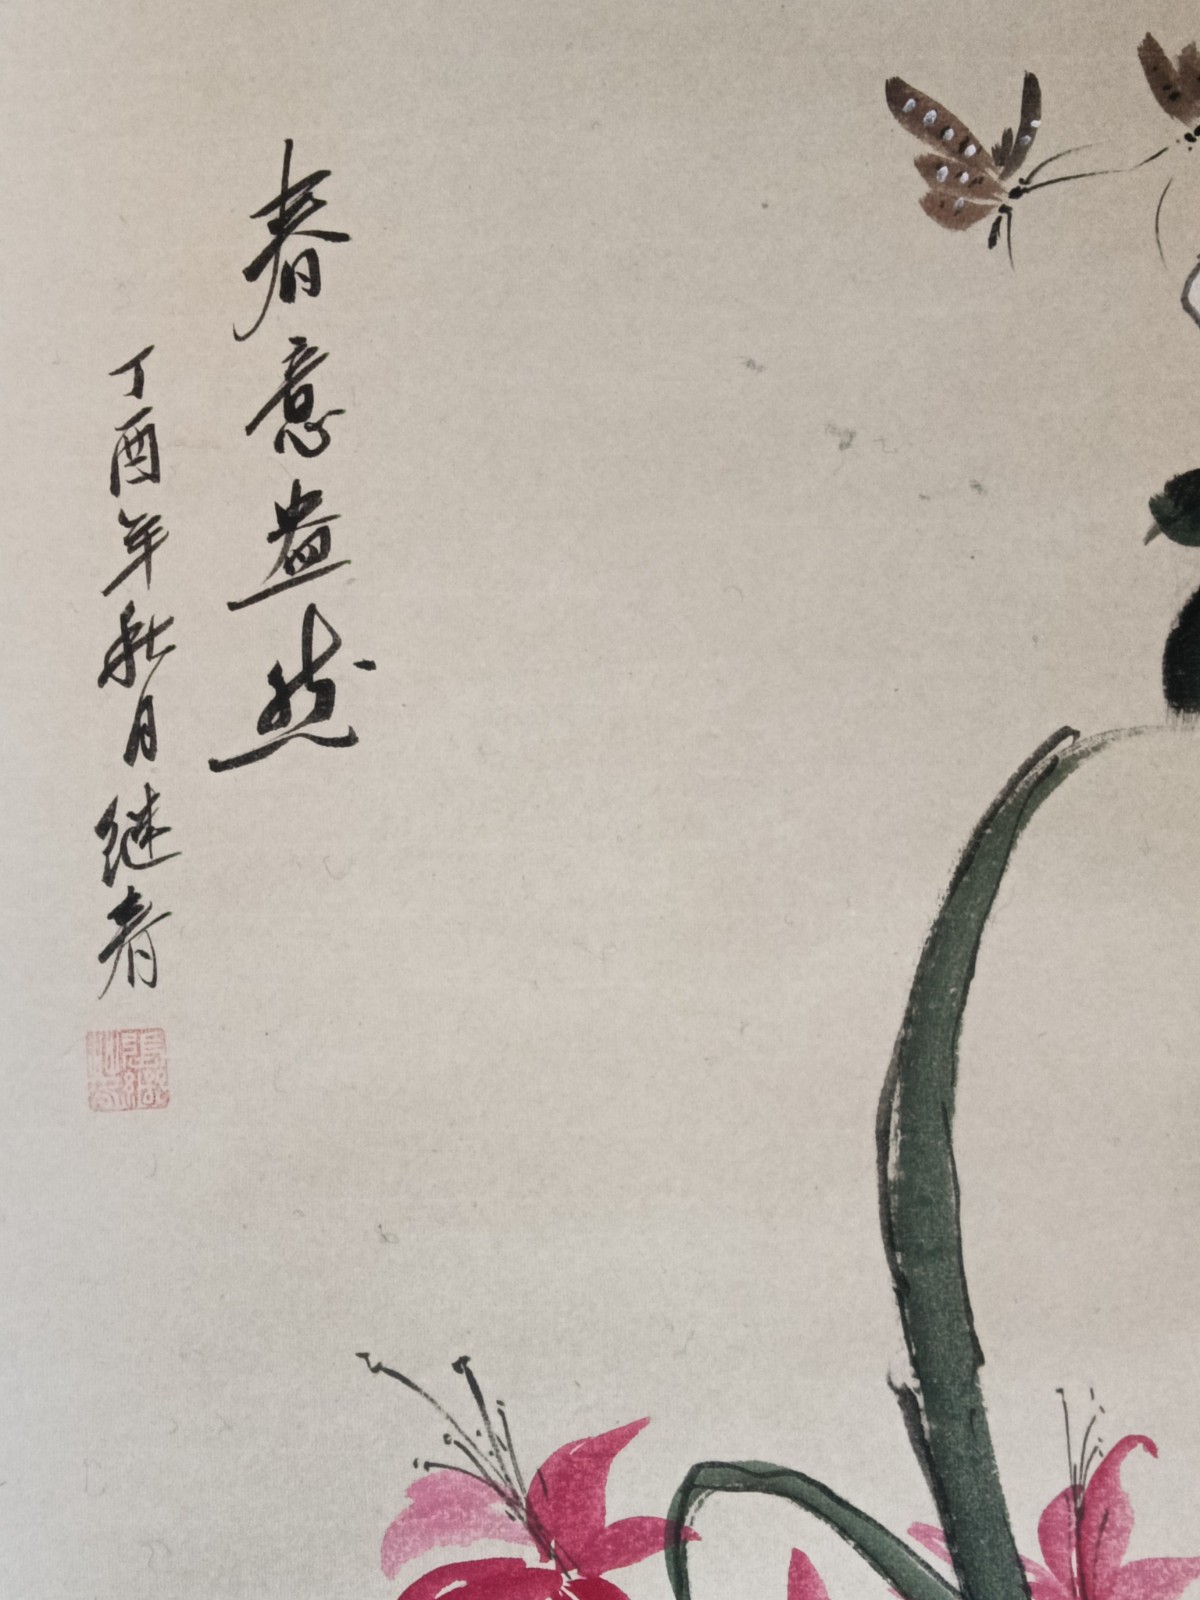 春意盎然
丁酉年秋月继青